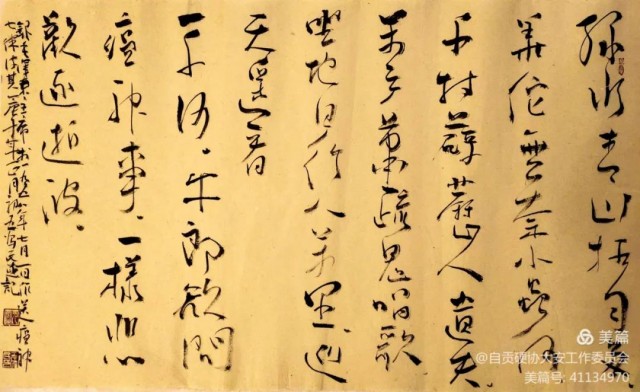 绿水青山枉自多
華佗無奈小蟲何
千村薜荔人遺矢
萬户蕭疏鬼唱歌
坐地日行八万里巡
天遥看
一千河，牛郎欲問
瘟神事，一樣悲
歡逐逝波。
七月一日作送瘟神
七律诗其一
美篇
@自贡硬协大安工作委员会
美篇号: 41134970